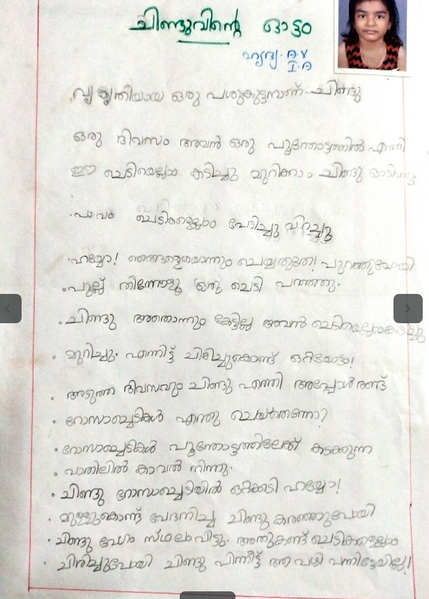 ചിണ്ടുവിന്റെ ഓട്ടം
ഹൃദ്യ. A.V
I.A
വികൃതിയായ ഒരു പശുകുട്ടനാണ് ചിണ്ടു
ഒരു ദിവസം അവൻ ഒരു പൂന്തോട്ടത്തിൽ എത്തി
ഈ ചെടിയെല്ലാം കടിച്ചു മുറിക്കാം ചിണ്ടു
പാവം ചെടികളെല്ലാം പേടിച്ചു വിറച്ചു
ഹയ്യോ! ഞങ്ങളെയൊന്നും ചെയ്യരുതേ! പുറത്തുപോയി
പുല്ല് തിന്നോളൂ ഒരു ചെടി പറഞ്ഞു.
ചിണ്ടു അതൊന്നും കേട്ടില്ല അവൻ ചെടിയെല്ലാം കടിച്ചു
മുറിച്ചു. എന്നിട്ട് ചിരിച്ചുകൊണ്ട് ഒറ്റയോട്ടം!
അടുത്ത ദിവസവും ചിണ്ടു എത്തി അപ്പോൾ രണ്ട്
റോസാച്ചെടികൾ എന്തു ചെയ്തെന്നോ?
റോസാച്ചെടികൾ പൂന്തോട്ടത്തിലേക്ക് കടക്കുന്ന
വാതിലിൽ കാവൽ നിന്നു.
ചിണ്ടു റോസാച്ചെടിയിൽ ഒറ്റക്കടി ഹയ്യോ!
മുള്ളുകൊണ്ട് വേദനിച്ച ചിണ്ടു കരഞ്ഞുപോയി
ചിണ്ടു വേഗം സ്ഥലം വിട്ടു. അതുകണ്ട് ചെടികളെല്ലാം
ചിരിച്ചുപോയി ചിണ്ടു പിന്നീട്ട് ആ വഴി വന്നിട്ടേയില്ല!